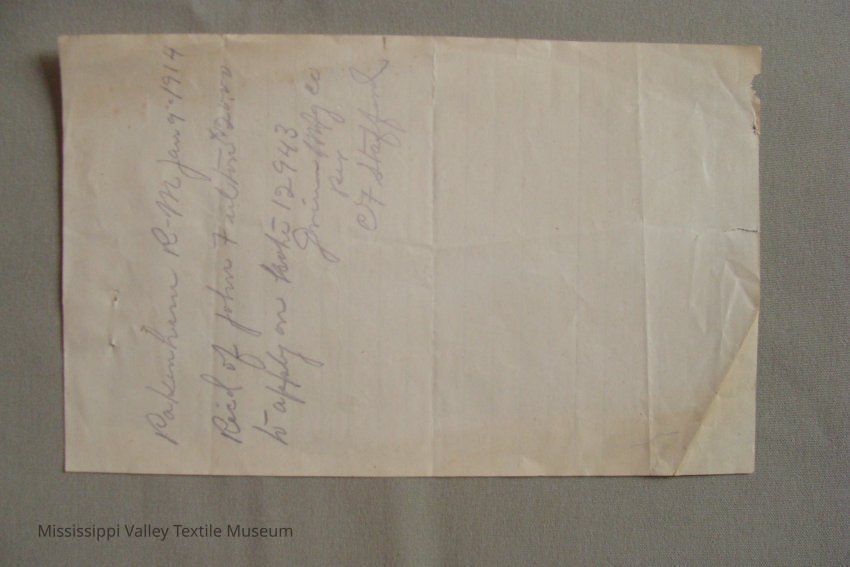 Pakenham R-M Jan 9-1914
Recd of John Fulton $20.00
to apply on Note 12943
Mfg Co
per
C F Stafford
Mississippi Valley Textile Museum